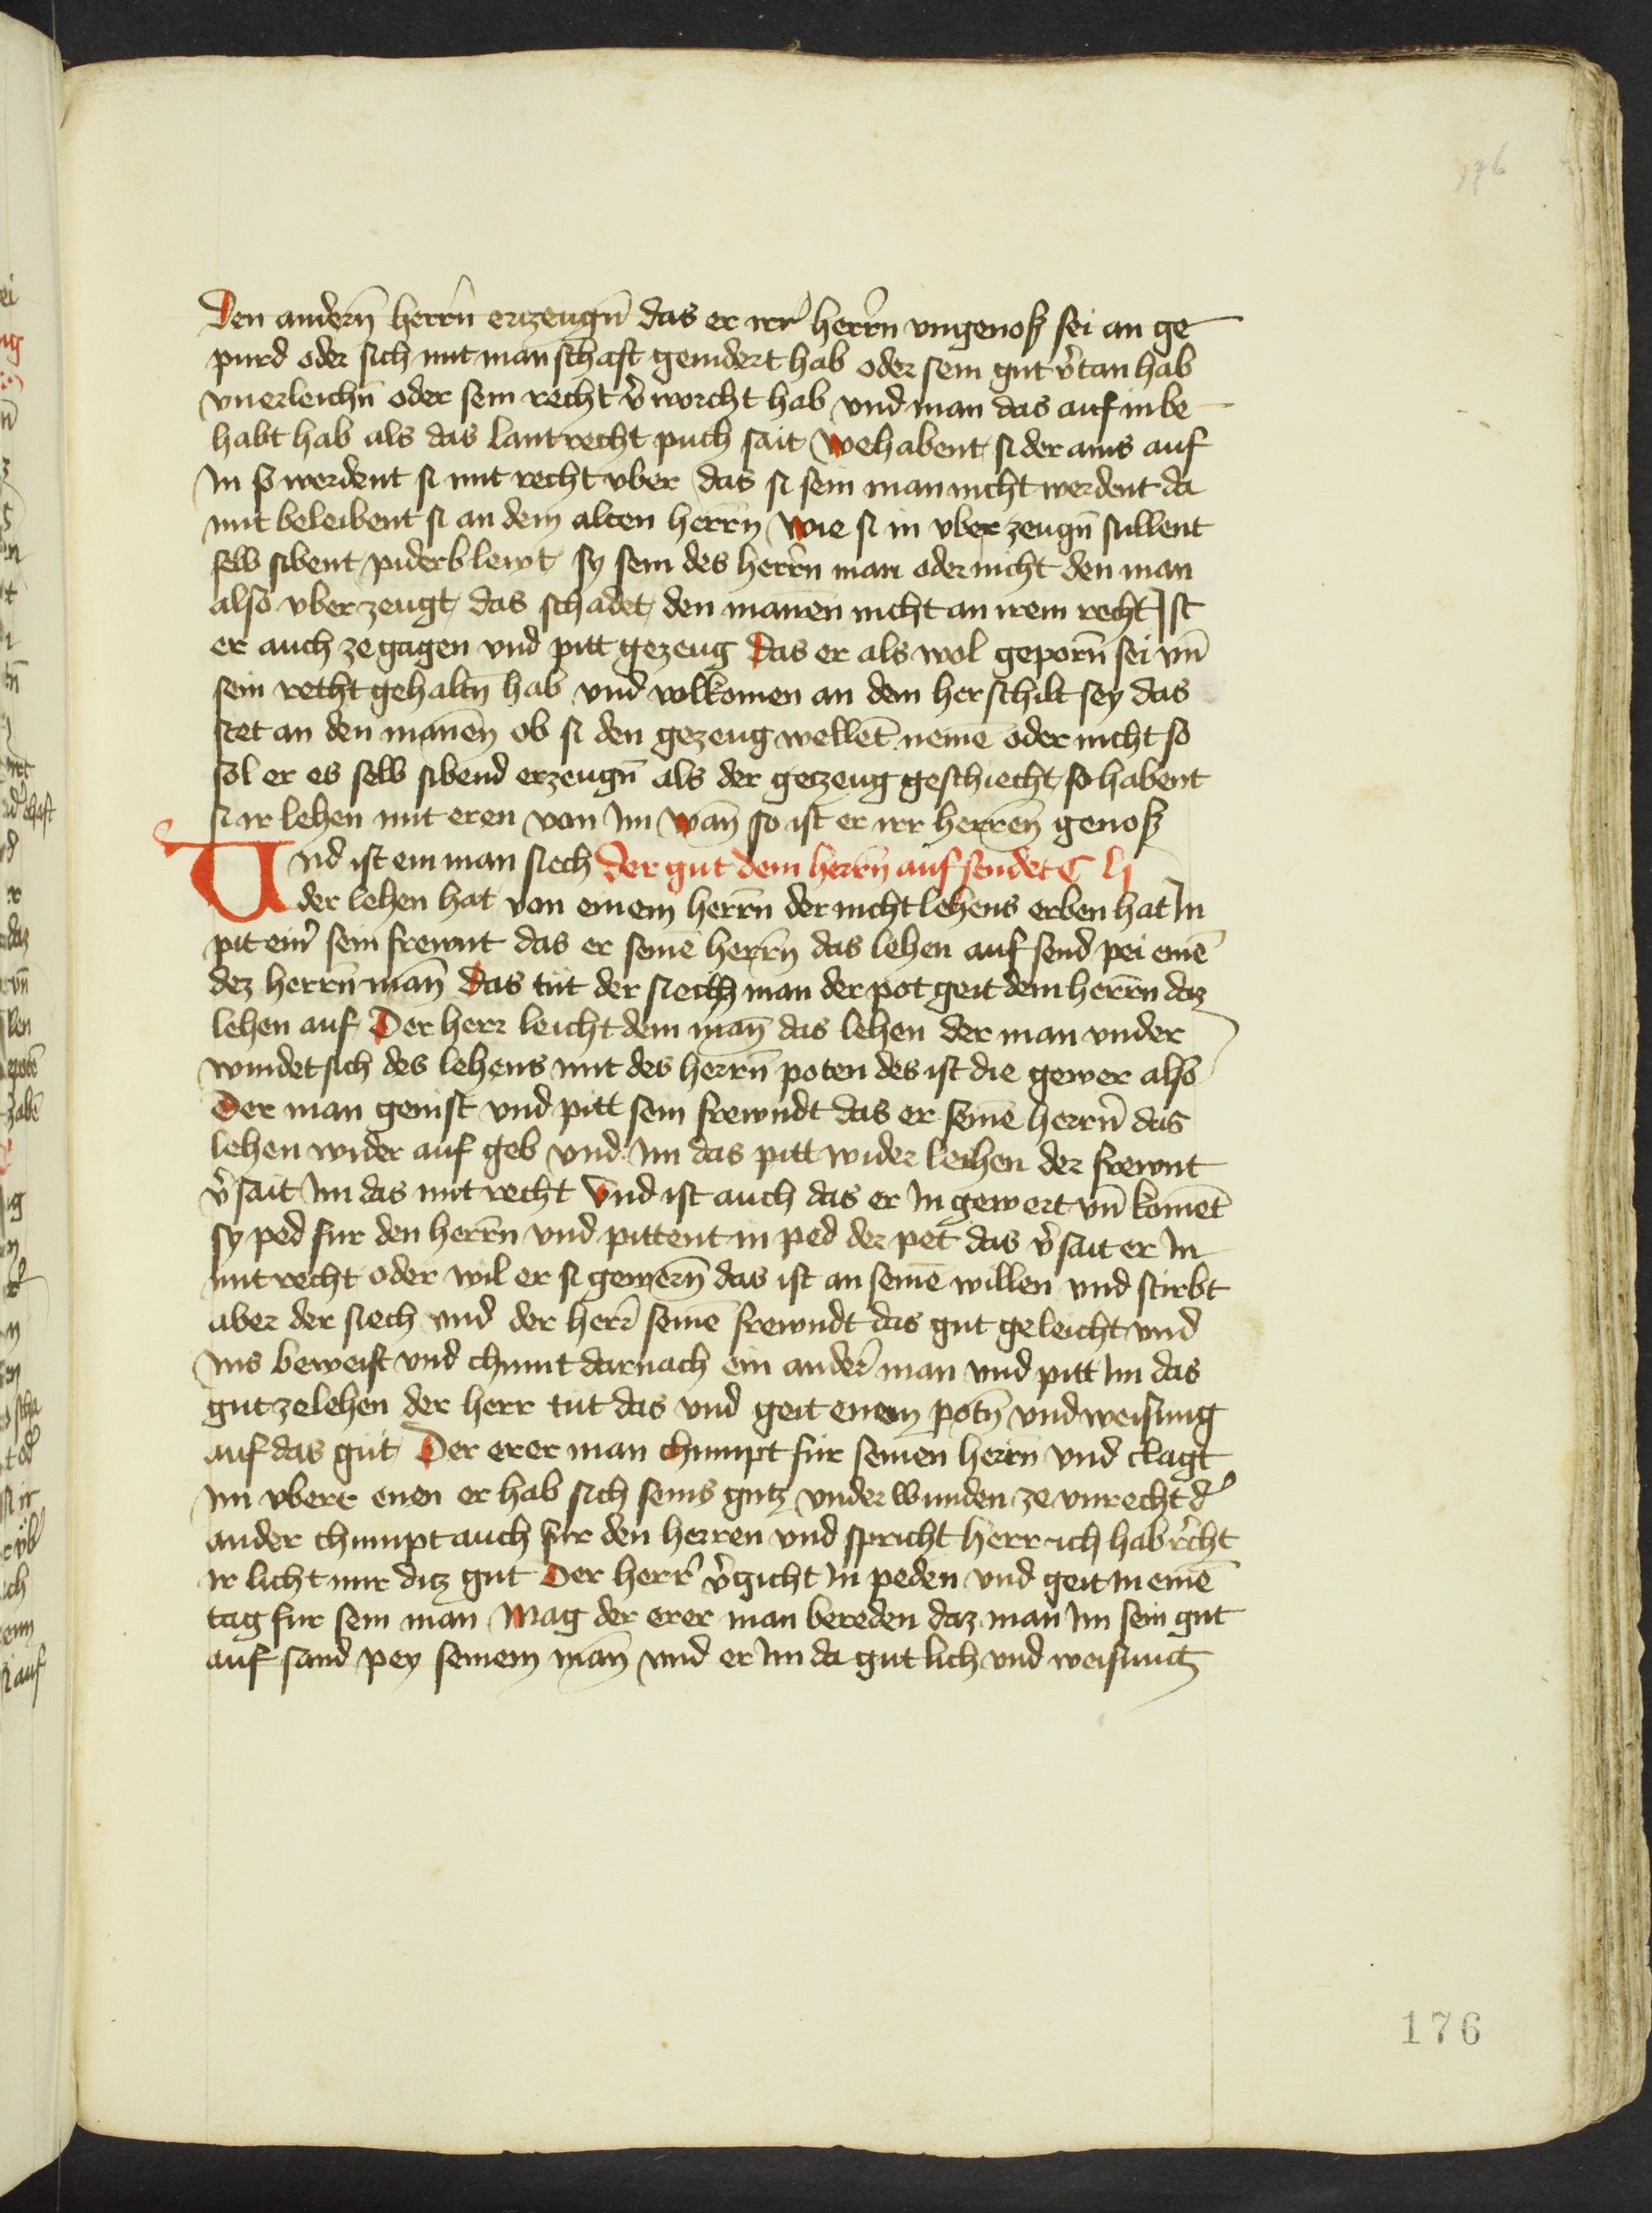 176
den andern̄ herrn̄ erczeugn̄ das er irr herrn̄ vngenoß sei an ge
purd oder sich mit manschaft genidert hab oder sein gut v̓tan hab
vnerleichn̄ oder sein recht v̓worcht hab vnd man das auf in be
habt hab als das lantrecht puch sait wehabent si der ains auf
In so werdent si mit recht vber das si sein man nicht werdent da
mit beleibent si an dem alten herrn̄ wie si in vber zeugn̄ sullent
selb sibent piderb lewt sy sein des herrn̄ man oder nicht den man
also vber zeugt das schadet den manēn nicht an irem recht Ist
er auch ze gagen vnd pitt gezeug das er als wol geporn̄ sei vn̄
sein recht gehaltn̄ hab vnd volkomen an dem herschilt sey das
stet an den manēn ob si den gezeug wellēt nemē oder nicht so
sol er es selb sibend erzeugn̄ als der geczeug geschiecht so habent
si ir lehen mit eren von Im wan̄ so ist er irr herren̄ genoß
Vnd ist ein man siech der gut dem herrn̄ auf sendet C lj
der lehen hat von einem herrn̄ der nicht lehens erben hat In
pit ein̓ sein frewnt das er seinē herrn̄ das lehen auf send pei einē
dez herrn̄ man̄ das tut der siech man der pot geit dem herrn̄ daz
lehen auf Der herr leicht dem man̄ das lehen der man vnder
windet sich des lehens mit des herrn̄ poten des ist die gewer also
Der man genist vnd pitt sein frewndt das er seinē herrn̄ das
lehen wider auf geb vnd Im das pitt wider leihen der frewnt
v̓sait Im das mit recht Vnd ist auch das er In gewert vn̄ komēt
sy ped fur den herrn̄ vnd pittent in ped der pet das v̓sait er In
mit recht oder wil er si gewern̄ das ist an seinē willen vnd stirbt
aber der siech vnd der herr seinē frewndt das gut geleicht vnd
Ins beweist vnd chumt darnach ein ander man vnd pitt Im das
gut ze lehen der herr tut das vnd geit enem potn̄ vnd weisung
auf das gut Der erer man chumpt fur seinen herrn̄ vnd clagt
Im vberr enen er hab sich seins gutz vnder wunden ze vnrecht d̓
ander chumpt auch fur den herren vnd spricht herr ich hab recht
ir licht mir ditz gut Der herr v̓gicht In peden vnd geit In einē
tag fur sein man Mag der erer man bereden daz man Im sein gut
auf sand pey seinem man̄ vnd er Im da gutlich vnd weisung
176